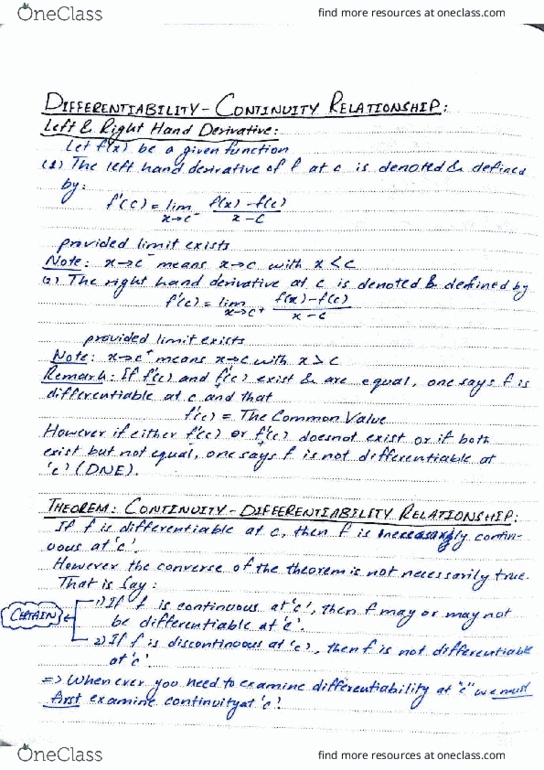 OneClass
find more resources at oneclass.com
DIFFERENTIABILITY - CONTINUITY RELATIONSHIP:
Left & Right Hand Derivative:
Let f(x) be a given function
(1) The left hand derivative of f at c is denoted & defined
by:
f'(c) = lim x→c⁻ f(x) - f(c) / x - c
provided limit exists
Note: x→c⁻ means x→c with x < c
(2) The right hand derivative at c is denoted & defined by
f'(c) = lim x→c⁺ f(x) - f(c) / x - c
provided limit exists
Note: x→c⁺ means x→c with x > c
Remark: If f'(c) and f'(c) exist & are equal, one says f is
differentiable at c and that
f'(c) = The Common Value
However if either f'(c) or f'(c) doesnot exist or if both
exist but not equal, one says f is not differentiable at
'c' (DNE).
THEOREM: CONTINUITY - DIFFERENTIABILITY RELATIONSHIP:
If f is differentiable at c, then f is necessarily contin-
uous at 'c'.
However the converse of the theorem is not necessarily true.
That is say:
CERTAIN
1) If f is continuous at 'c', then f may or may not
be differentiable at 'c'.
2) If f is discontinuous at 'c', then f is not differentiable
at 'c'
=> When ever you need to examine differentiability at "c" we must
first examine continuity at 'c'!
OneClass
find more resources at oneclass.com